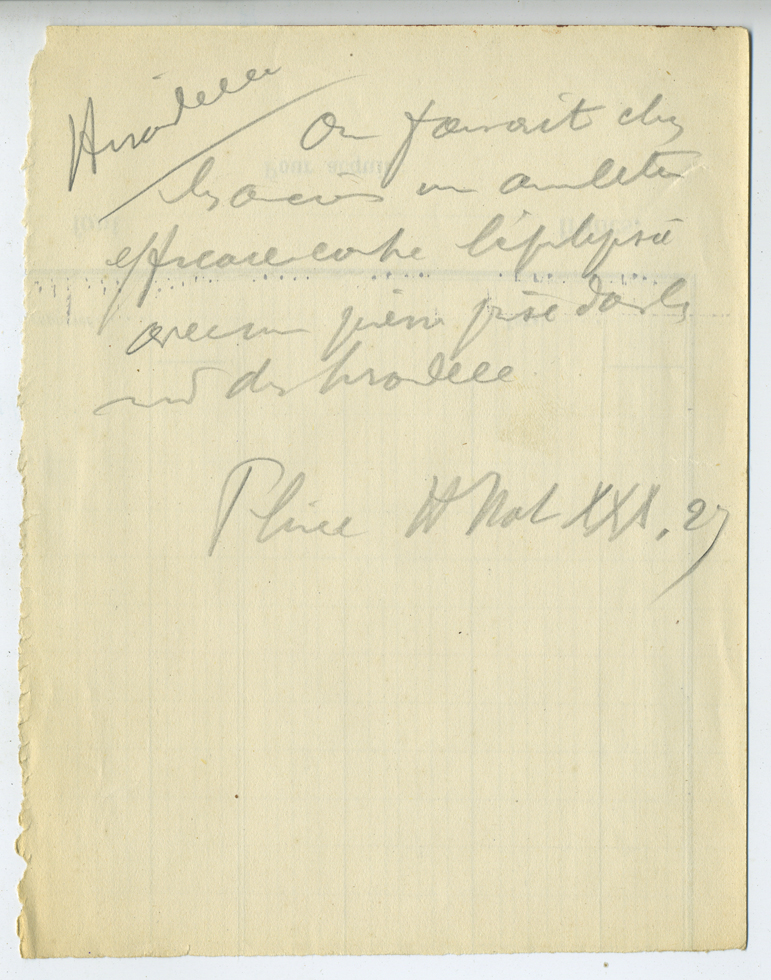 Hirondelle
On faisait chez
les anciens un amulette
efficace contre l'épilepsie
avec une pierre prise dans les
nid des hirondelle
Pline H Nat XXX, 27